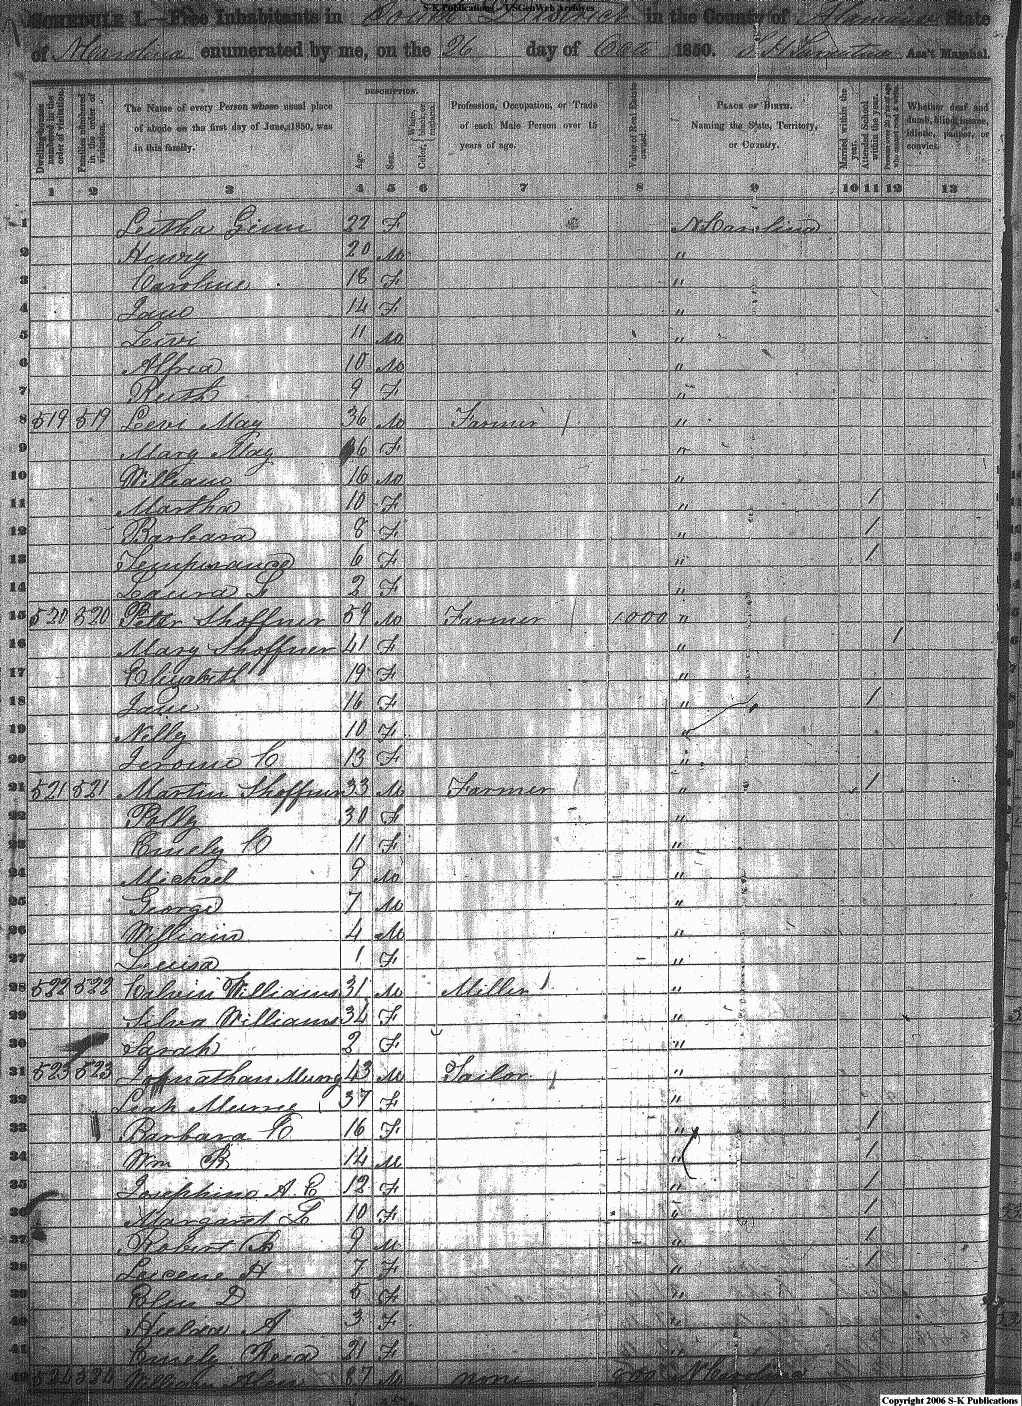 S-K Publications - USGenWeb Archives
SCHEDULE I.—Free Inhabitants in South District in the County of Alamance State
of N Carolina enumerated by me, on the 26 day of Octo 1850. Ass't Marshal.
Dwelling-houses numbered in the order of visitation.
Families numbered in the order of visitation.
The Name of every Person whose usual place of abode on the first day of June, 1850, was in this family.
DESCRIPTION.
Age.
Sex.
Color, White, black, or mulatto.
Profession, Occupation, or Trade of each Male Person over 15 years of age.
Value of Real Estate owned.
PLACE OF BIRTH. Naming the State, Territory, or Country.
Married within the year.
Attended School within the year.
Whether deaf and dumb, blind, insane, idiotic, pauper, or convict.
1 2 3 4 5 6 7 8 9 10 11 12 13
1 Leitha 22 F N Carolina
2 Henry 20 M "
3 Caroline 18 F "
4 Jane 14 F "
5 Levi 11 M "
6 Alfred 10 M "
7 Ruth 9 F "
8 519 519 Levi May 36 M Farmer "
9 Mary May 36 F "
10 William 16 M "
11 Martha 10 F " 1
12 Barbara 8 F " 1
13 Temperance 6 F " 1
14 Laura L 2 F "
15 520 520 Peter Shoffner 59 M Farmer 1000 "
16 Mary Shoffner 41 F " 1
17 Elizabeth 19 F "
18 Jane 16 F " 1
19 Nilly 10 F "
20 Jerome C 13 F "
21 521 521 Martin Shoffner 33 M Farmer " 1
22 Polly 30 F "
23 Emely C 11 F "
24 Michael 9 M "
25 George 7 M "
26 William 4 M "
27 Louisa 1 F "
28 522 522 Calvin Williams 31 M Miller "
29 Silva Williams 34 F "
30 Sarah 2 F "
31 523 523 Johnathan 43 M Tailor "
32 Leah 37 F "
33 Barbara C 16 F " 1
34 Wm B 14 M " 1
35 Josephine A E 12 F " 1
36 Margaret L 10 F " 1
37 Robert 9 M " 1
38 H 7 F " 1
39 D 5 F "
40 A 3 F "
41 Emely Reid 21 F "
42 524 524 William 87 M none 500 N Carolina
Copyright 2006 S-K Publications